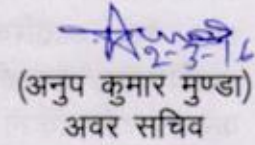 2-3-16
(अनुप कुमार मुण्डा)
अवर सचिव